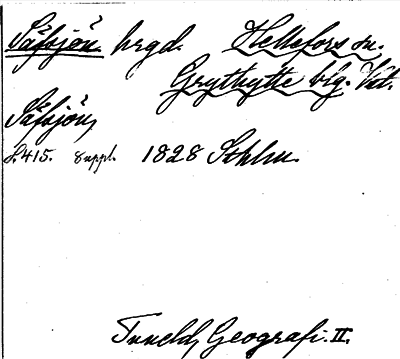 Såfsjön hrgd. Hellefors sn.
Grythytte blg. Vstm.
Såfsjön,
S.415. Suppl. 1828 Sthlm.
Tuneld, Geografi. II.